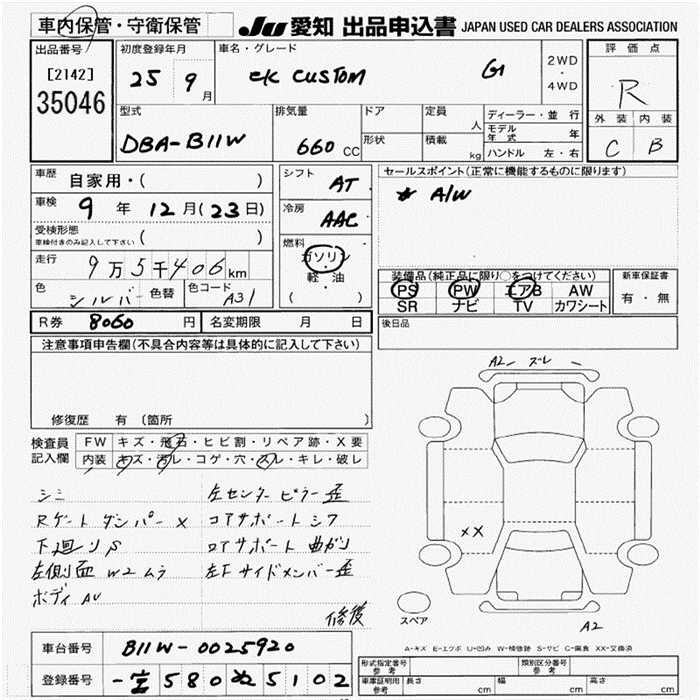 車内保管・守衛保管 JU 愛知 出品申込書 JAPAN USED CAR DEALERS ASSOCIATION
出品番号
[2142]
35046
初度登録年月
25 9月
車名・グレード
ek CUSTOM G
2WD
・
4WD
評価点
R
外装 内装
C B
型式
DBA-B11W
排気量
660 CC
ドア
形状
定員
人
積載
kg
ディーラー・並行
モデル年式 年
ハンドル 左・右
車歴
自家用・( )
車検
9年12月(23日)
受検形態
車検付きのみ記入して下さい ( )
走行
9万5千406km
色
シルバー
色替
色コード
A31
シフト
AT
冷房
AAC
燃料
ガソリン
・
軽・油
( )
セールスポイント(正常に機能するものに限ります)
A/W
装備品(純正品に限り○をつけてください)
PS PW エアB AW
SR ナビ TV カワシート
新車保証書
有・無
R券 8060 円
名変期限 月 日
後日品
注意事項申告欄(不具合内容等は具体的に記入して下さい)
修復歴 有 〔箇所 〕
検査員
記入欄
FW キズ・飛石・ヒビ割・リペア跡・X要
内装 キズ・汚レ・コゲ・穴・スレ・キレ・破レ
シミ
Rゲートダンパー X
下廻りS
左側面 W2 ムラ
ボディ AU
左センターピラー歪
コアサポートシワ
コアサポート曲がり
左Fサイドメンバー歪
修復
A2 ズレ
XX
スペア
A2
A-キズ E-エクボ U-凹み W-補修跡 S-サビ C-腐食 XX-交換済
車台番号
B11W-0025920
登録番号
580 5102
形式指定番号
参考
類別区分番号
参考
車庫証明用
参考
長さ cm
幅 cm
高さ cm